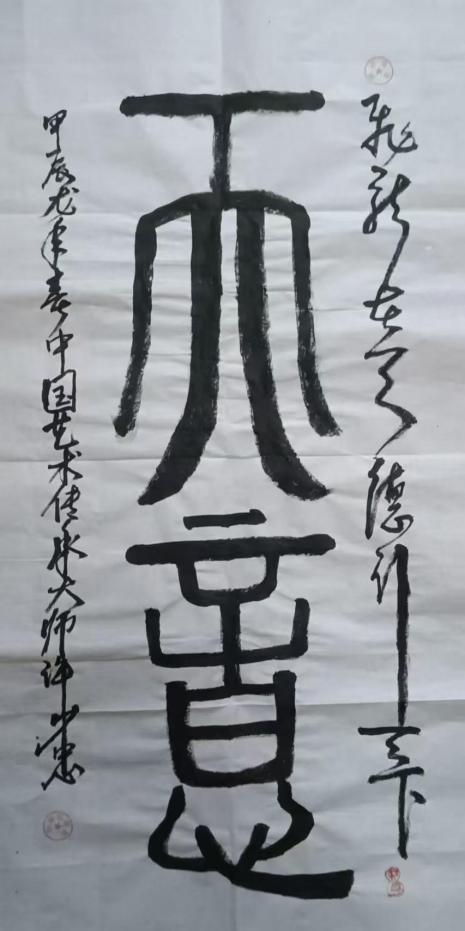 飛龙在天德行天下
天意
甲辰龙年春中国艺术传承大师许